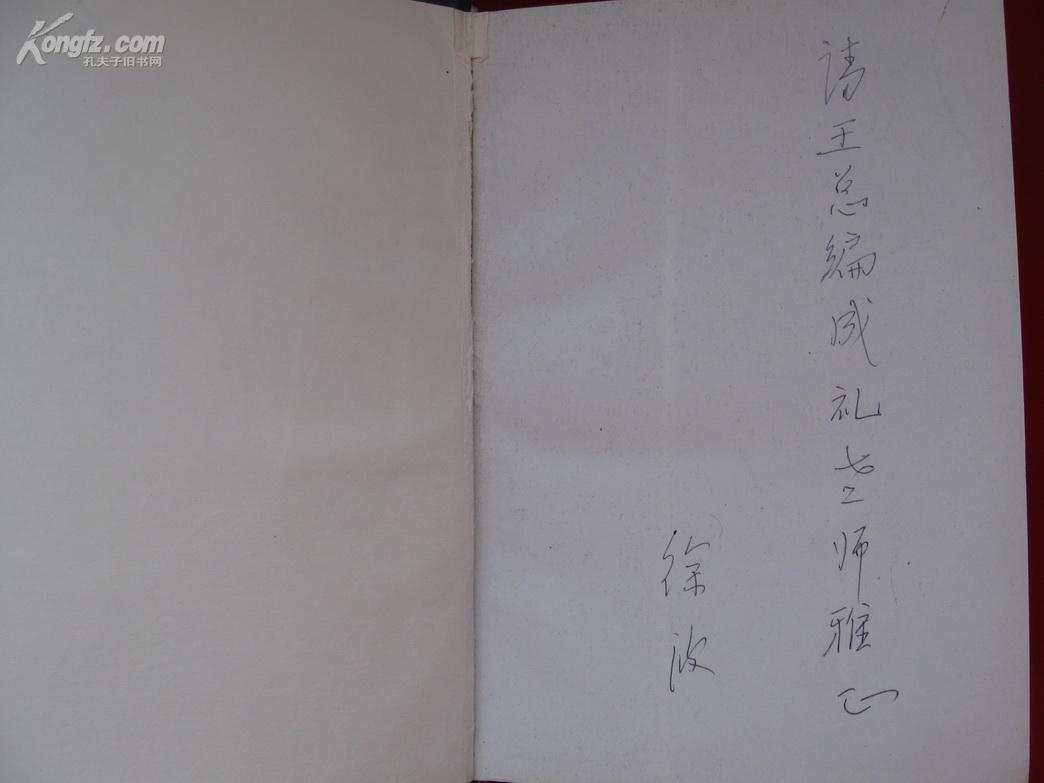 Kongfz.com
孔夫子旧书网
请王总编成礼老师雅正
徐波